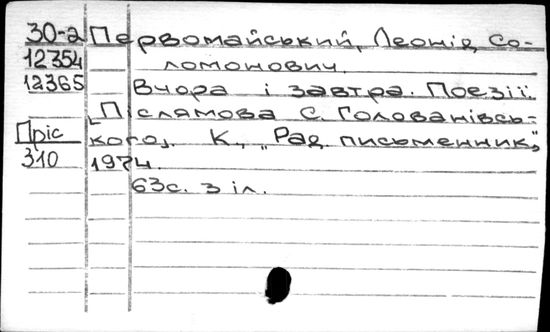 30-а Первомайський, Леонід Со-
12354 ломонович.
12365 Вчора і завтра. Поезії.
[Післямова С. Голованівсь-
Пріс кого]. К., "Рад. письменник",
310 1974.
63с. з іл.